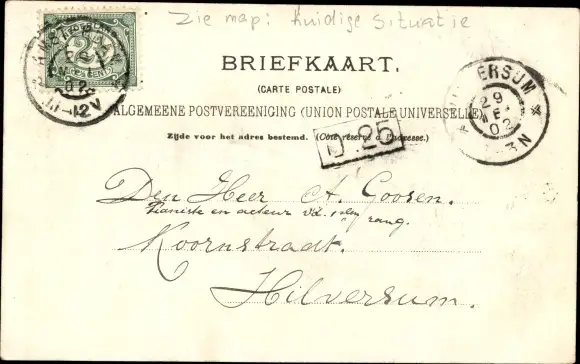 Zie map: huidige situatie
2½
BRIEFKAART.
(CARTE POSTALE)
ALGEMEENE POSTVEREENIGING (UNION POSTALE UNIVERSELLE)
Zijde voor het adres bestemd. (Côté réservé à l'adresse.)
HILVERSUM
29
02
N 25
Den Heer A. Goosen.
Pianiste en acteur v.d. 1sten rang.
Koornstraadt.
Hilversum.